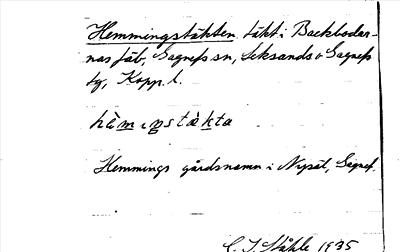 Hemmingstäkten täkt i Backbodar-
nas fäb, Gagnefs sn, Leksands o Gagnefs
tg, Kopp. l.
hèm ɩŋstàkta
Hemmings gårdsnamn i Nysät, Gagnef.
C. I. Ståhle 1935